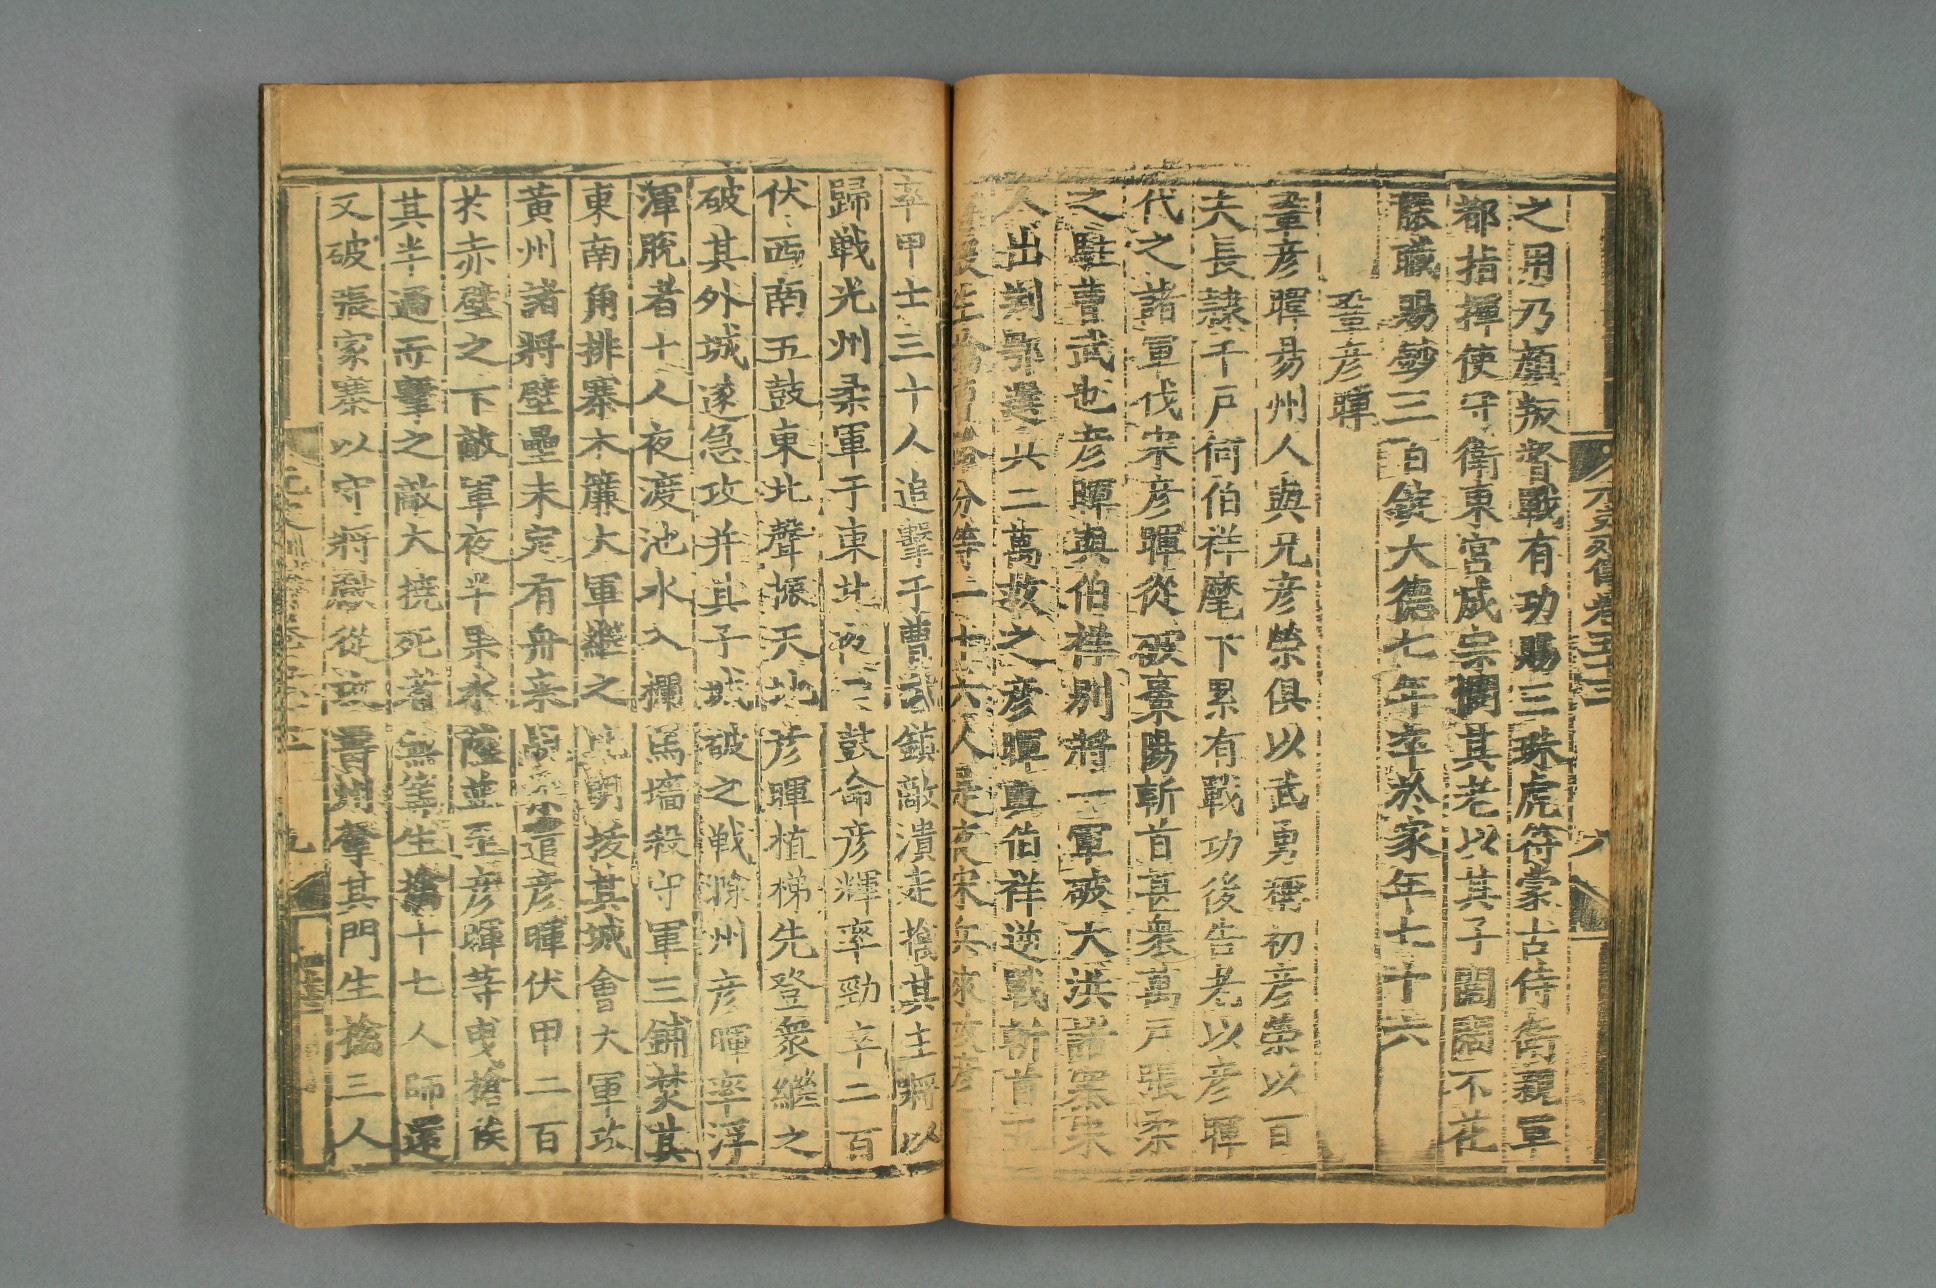 元史列傳卷五十三
八
之用乃顏叛督戰有功賜三珠虎符蒙古侍衛親軍
都指揮使守衛東宮成宗憫其老以其子闊闊不花
襲職賜鈔三百錠大德七年卒於家年七十六
鞏彦暉
鞏彦暉易州人與兄彦榮俱以武勇稱初彦榮以百
夫長隷千戸何伯祥麾下累有戰功後告老以彦暉
代之諸軍伐宋彦暉從破棗陽斬首甚衆萬戸張柔
之駐曹武也彦暉與伯祥别將一軍破大洪諸寨宋
人出荆鄂選兵二萬救之彦暉直伯祥逆戰斬首五
分等二十六人是夜宋兵來攻彦暉
率甲士三十人追擊于曹武鎮敵潰走擒其主將以
歸戦光州柔軍于東北夜二鼓命彦輝率勁卒二百
伏西南五鼓東北聲振天地彦暉植梯先登衆繼之
破其外城遂急攻并其子城破之戦滁州彦暉率浮
渾脱者十人夜渡池水入欄馬墻殺守軍三鋪焚其
東南角排寨木簾大軍繼之比明拔其城會大軍攻
黄州諸將壁壘未定有舟來彦暉伏甲二百
於赤壁之下敵軍夜半果水陸並至彦暉等曵槍俟
其半過而擊之敵大撓死者無筭生擒十七人師還
又破張家寨以守將獻從攻壽州奪其門生擒三人
九